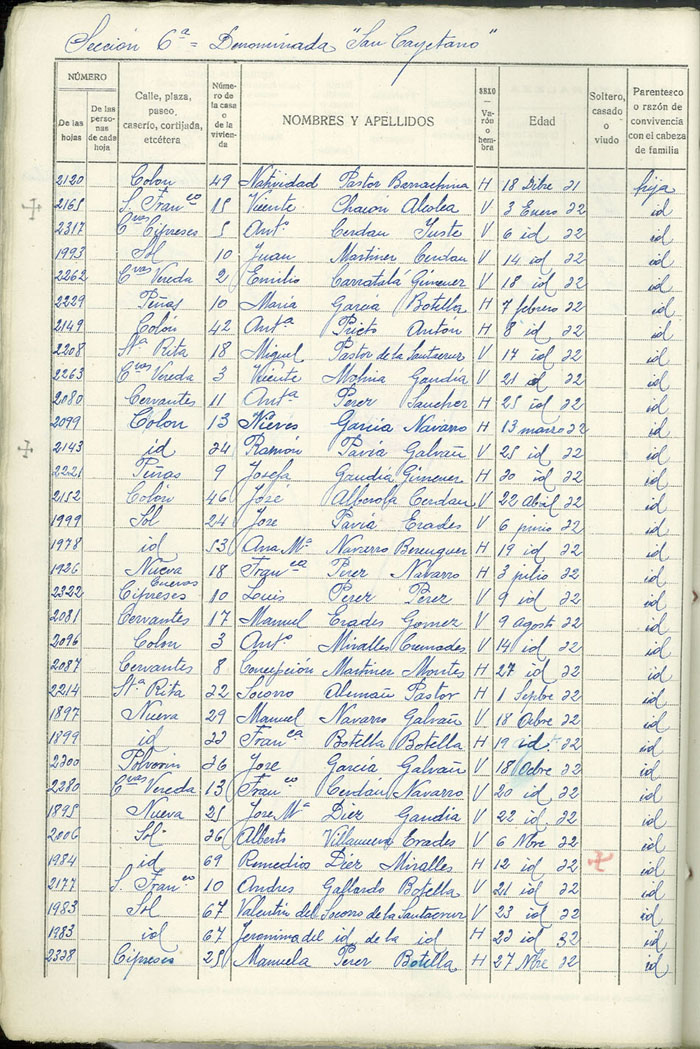 Sección 6ª = Denominada "San Cayetano"
NÚMERO
De las hojas
De las personas de cada hoja
Calle, plaza, paseo, caserío, cortijada, etcétera
Número de la casa o de la vivienda
NOMBRES Y APELLIDOS
SEXO — Varón o hembra
Edad
Soltero, casado o viudo
Parentesco o razón de convivencia con el cabeza de familia
2120 Colon 49 Natividad Pastor Barrachina H 18 Dibre 21 hija
2165 S. Franco 15 Vicente Chacón Alcolea V 3 Enero 22 id
2317 Cvas Cipreses 5 Antº Cerdan Juste V 6 id 22 id
1993 Sol 10 Juan Martinez Cerdan V 14 id 22 id
2262 Cvas Vereda 2 Emilio Carratalá Gimener V 18 id 22 id
2229 Peñas 10 Maria Garcia Botella H 7 febrero 22 id
2149 Colón 42 Antª Prieto Anton H 8 id 22 id
2208 Stª Rita 18 Miguel Pastor de la Santacruz V 17 id 22 id
2263 Cvas Vereda 3 Vicente Molina Gandia V 21 id 22 id
2080 Cervantes 11 Antª Perez Sanchez H 25 id 22 id
2099 Colon 13 Nieves Garcia Navarro H 13 marzo 22 id
2143 id 24 Ramón Pavia Galvañ V 25 id 22 id
2221 Peñas 9 Josefa Gandia Gimener H 30 id 22 id
2152 Colón 46 José Alberola Cerdan V 22 Abril 22 id
1999 Sol 24 Jose Pavia Erades V 6 junio 22 id
1978 id 53 Ana Mª Navarro Berenguer H 19 id 22 id
1926 Nueva 18 Franca Perez Navarro H 3 julio 22 id
2322 Cuevas Cipreses 10 Luis Perez Perez V 9 id 22 id
2081 Cervantes 17 Manuel Erades Gomez V 9 agosto 22 id
2096 Colon 3 Antº Miralles Cremades V 14 id 22 id
2087 Cervantes 8 Concepción Martinez Montes H 27 id 22 id
2214 Stª Rita 22 Socorro Alemañ Pastor H 1 Sepbre 22 id
1897 Nueva 29 Manuel Navarro Galvañ V 18 Obre 22 id
1899 id 33 Franca Botella Botella H 19 id 22 id
2300 Polvorin 36 Jose Garcia Galvañ V 18 Ocbre 22 id
2280 Cvas Vereda 13 Franco Cerdán Navarro V 20 id 22 id
1895 Nueva 25 Jose Mª Diez Gandia V 22 id 22 id
2006 Sol 36 Alberto Villanueva Erades V 6 Nbre 22 id
1984 id 69 Remedios Diez Miralles H 12 id 22 id
2177 S. Franco 10 Andres Gallardo Botella V 21 id 22 id
1983 Sol 67 Valentin del Socorro de la Santacruz V 23 id 22 id
1983 id 67 Jeronima del id de la id H 23 id 22 id
2338 Cipreses 25 Manuela Perez Botella H 27 Nbre 22 id